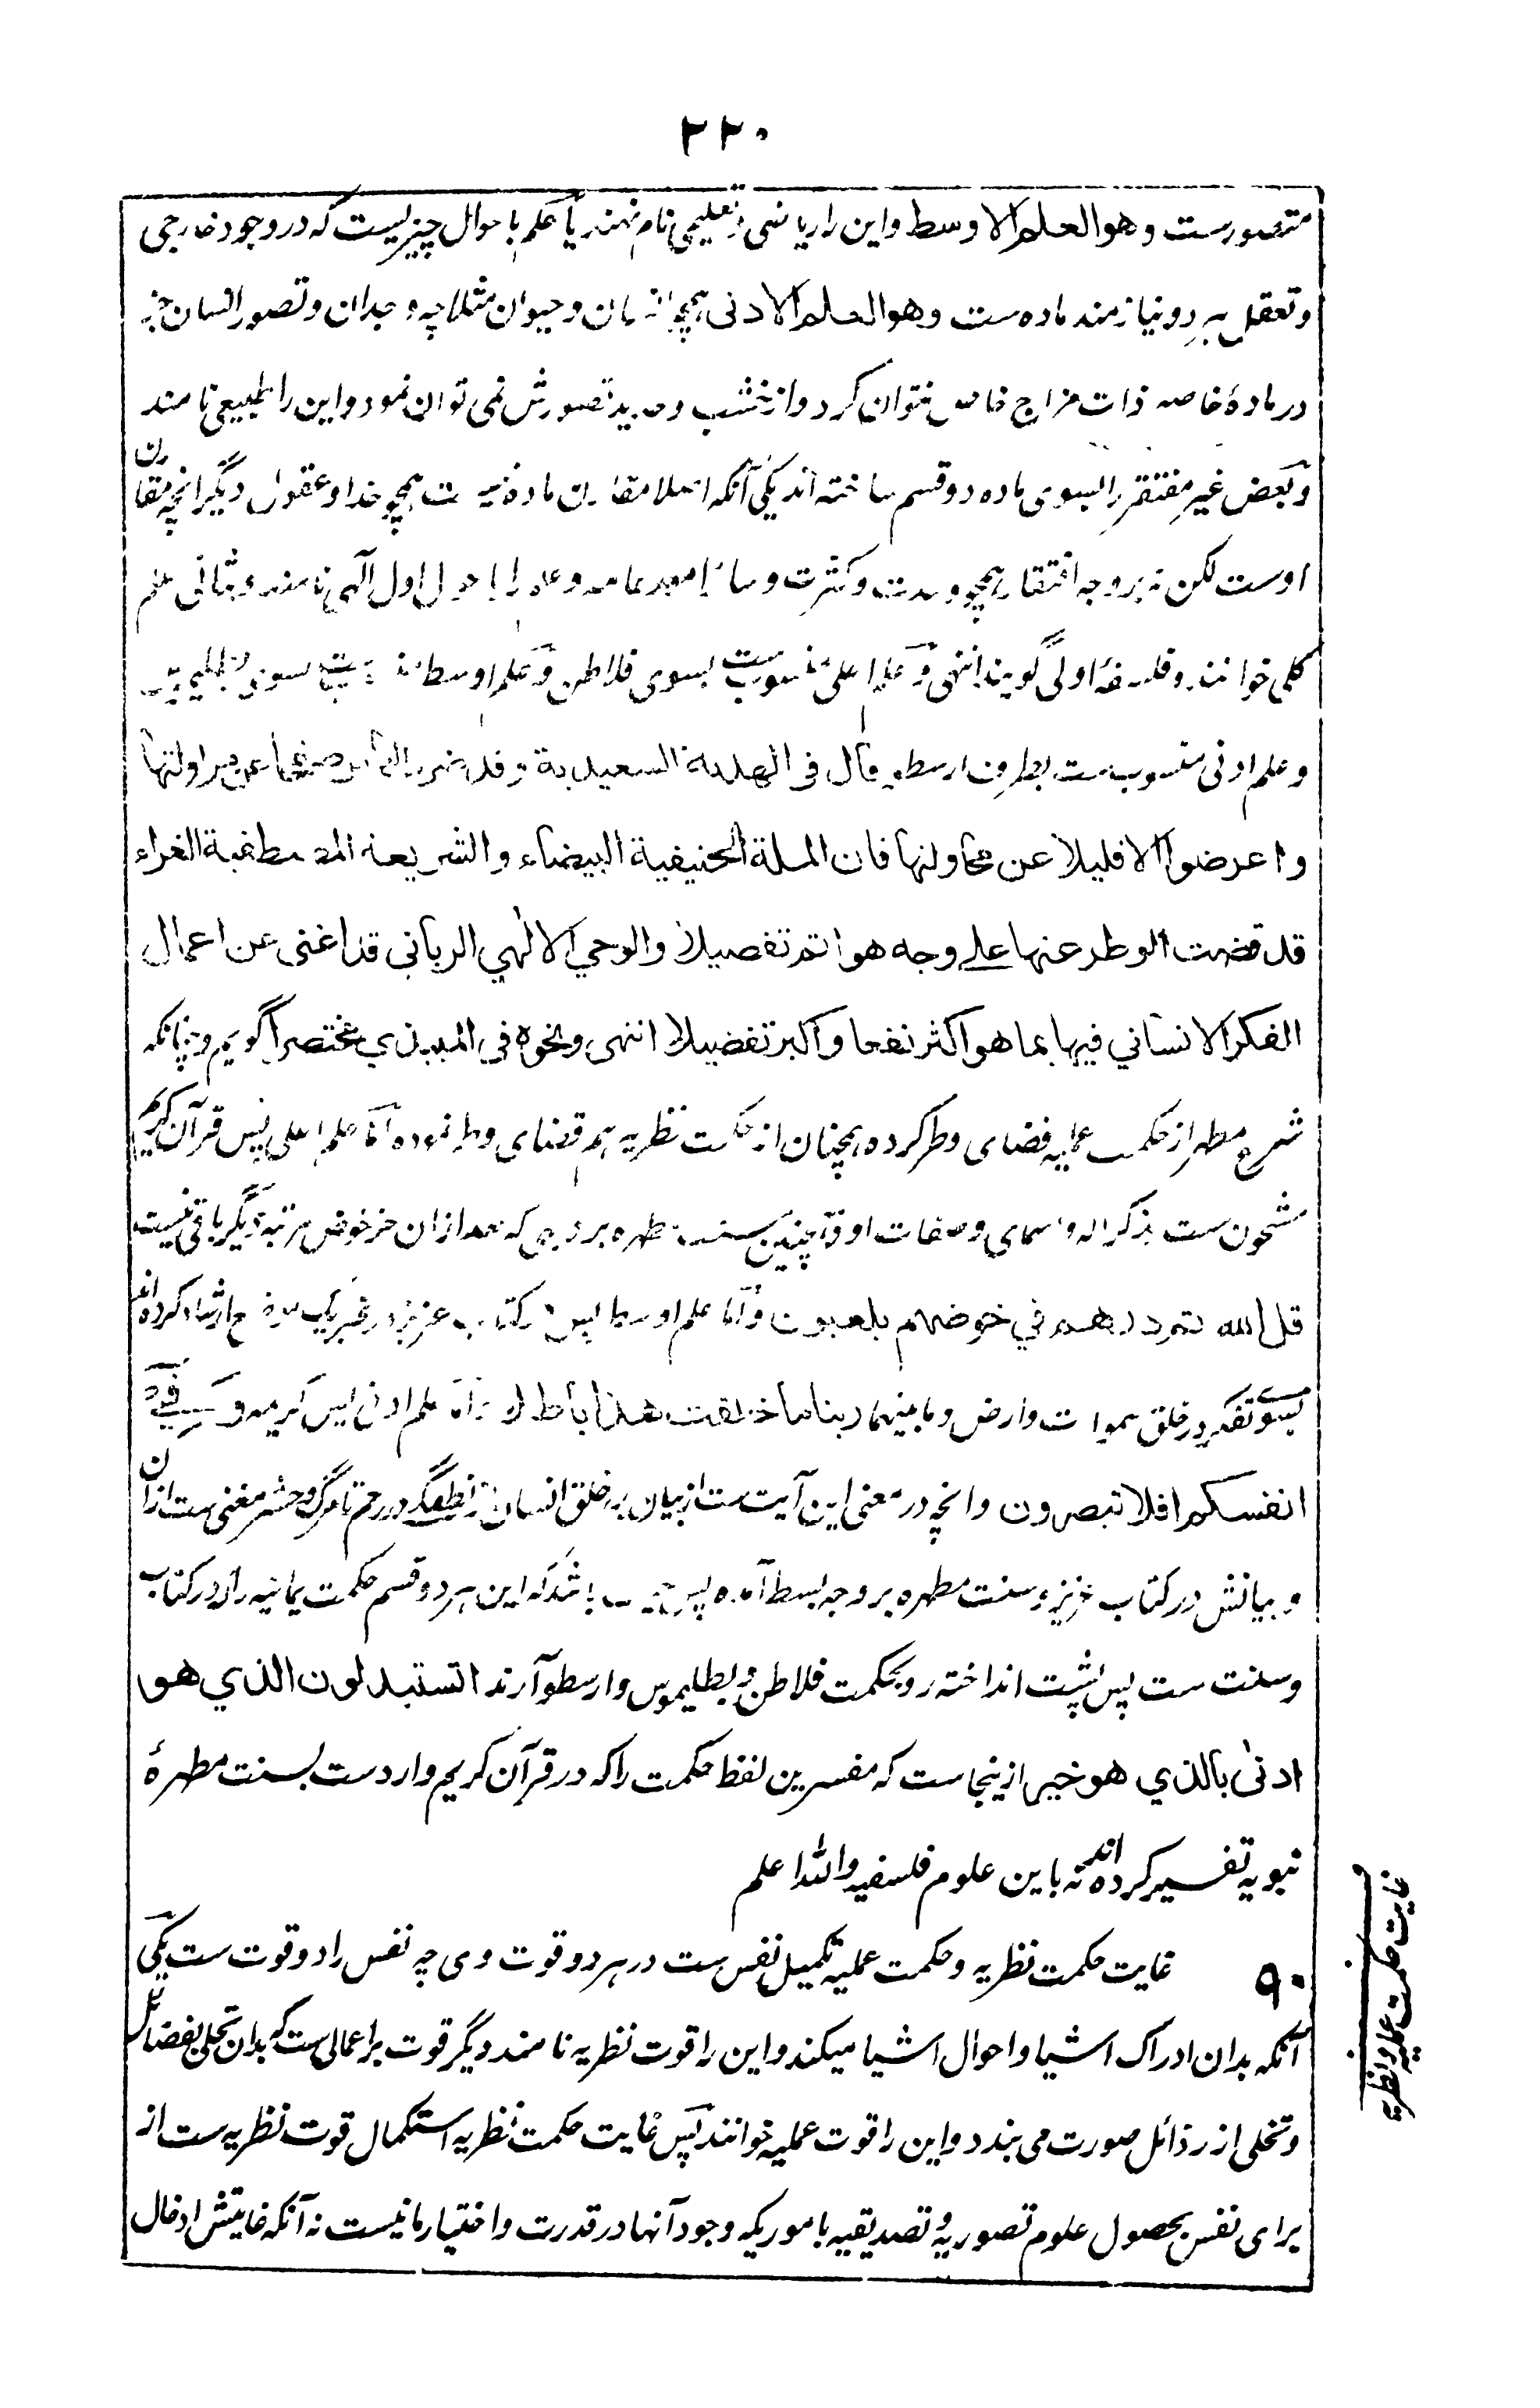 ۲۲۰
متصورست وهو العلم الاوسط واين را رياضى وتعليمى نام نهند يا علم باحوال چيزيست كه در وجود خارجى
وتعقل هر دو نيازمند ماده ست وهو العلم الادنى همچو انسان وحيوان مثلا چه وجدان وتصور انسان جز
در مادۀ خاصه ذات مزاج خاص نتوان كرد واز خشب وحديد تصورش نمى توان نمود واين را طبيعى نامند
وبعض غير مفتقر را بسوى ماده دو قسم ساخته اند يكى آنكه اصلا مقارن ماده نيست همچو خدا وعقول ديگر انچه مقارن
اوست لكن نه بر وجه افتقار همچو وحدت وكثرت وسائر امور عامه وعلم را باحوال اول آلهى نامند وبثانى علم
كلى خوانند وفلسفۀ اولى گويند انتهى وعلم اعلى منسوب ست بسوى فلاطن وعلم اوسط بسوى بطليموس
وعلم ادنى منسوب ست بطرف ارسطو قال فى الهدية السعيدية وقد عن مزاولتها
واعرضوا الا قليلا عن محاولتها فان الملة الحنيفية البيضاء والشريعة المصطفية الغراء
قد قضت الوطر عنها على وجه هو اتم تفصيلا والوحي الالهي الرباني قد اغنى عن اعمال
الفكر الانساني فيها بما هو اكثر نفعا واكبر تفضيلا انتهى ونحوه في الميبذي مختصرا گويم وچنانكه
شرع مطهر از حكمت عمليه قضاى وطر كرده همچنان از حكمت نظريه هم قضاى وطر نموده اما علم اعلى پس قرآن كريم
مشحون ست بذكر اله واسماى وصفات او وهمچنين سنت مطهره بر وجهى كه بعد ازان جز خوض مرتبۀ ديگر باقى نيست
قل الله ثم ذرهم في خوضهم يلعبون واما علم اوسط پس در كتاب عزيز در غير يك موضع ارشاد كرده اند
بسوى تفكر در خلق سموات وارض وما بينهما ربنا ما خلقت هذا باطلا واما علم ادنى پس كريمه وفي
انفسكم افلا تبصرون وانچه در معنى اين آيت ست از بيان بدء خلق انسان از نطفگى در رحم تا مرگ وحشر مغنى ست ازان
وبيانش در كتاب عزيز وسنت مطهره بر وجه بسط آمده پس باشد كه اين هر دو قسم حكمت يمانيه را كه در كتاب
وسنت ست پس پشت انداخته رو بحكمت فلاطن وبطليموس وارسطو آرند اتستبدلون الذي هو
ادنى بالذي هو خير از ينجاست كه مفسرين لفظ حكمت را كه در قرآن كريم واردست بسنت مطهرۀ
نبويه تفسير كرده اند نه باين علوم فلسفيه والله اعلم
۹۰ غايت حكمت نظريه وحكمت عمليه تكميل نفس ست در هر دو قوت وى چه نفس را دو قوت ست يكى
آنكه بدان ادراك اشيا واحوال اشيا ميكند واين را قوت نظريه نامند ديگر قوت بر اعمالى ست كه بدان تحلى بفضائل
وتخلى از رذائل صورت مى بندد واين را قوت عمليه خوانند پس غايت حكمت نظريه استكمال قوت نظريه ست از
براى نفس بحصول علوم تصوريه وتصديقيه باموريكه وجود آنها در قدرت واختيار ما نيست نه آنكه غايتش ادخال
غايت حكمت عمليه ونظريه